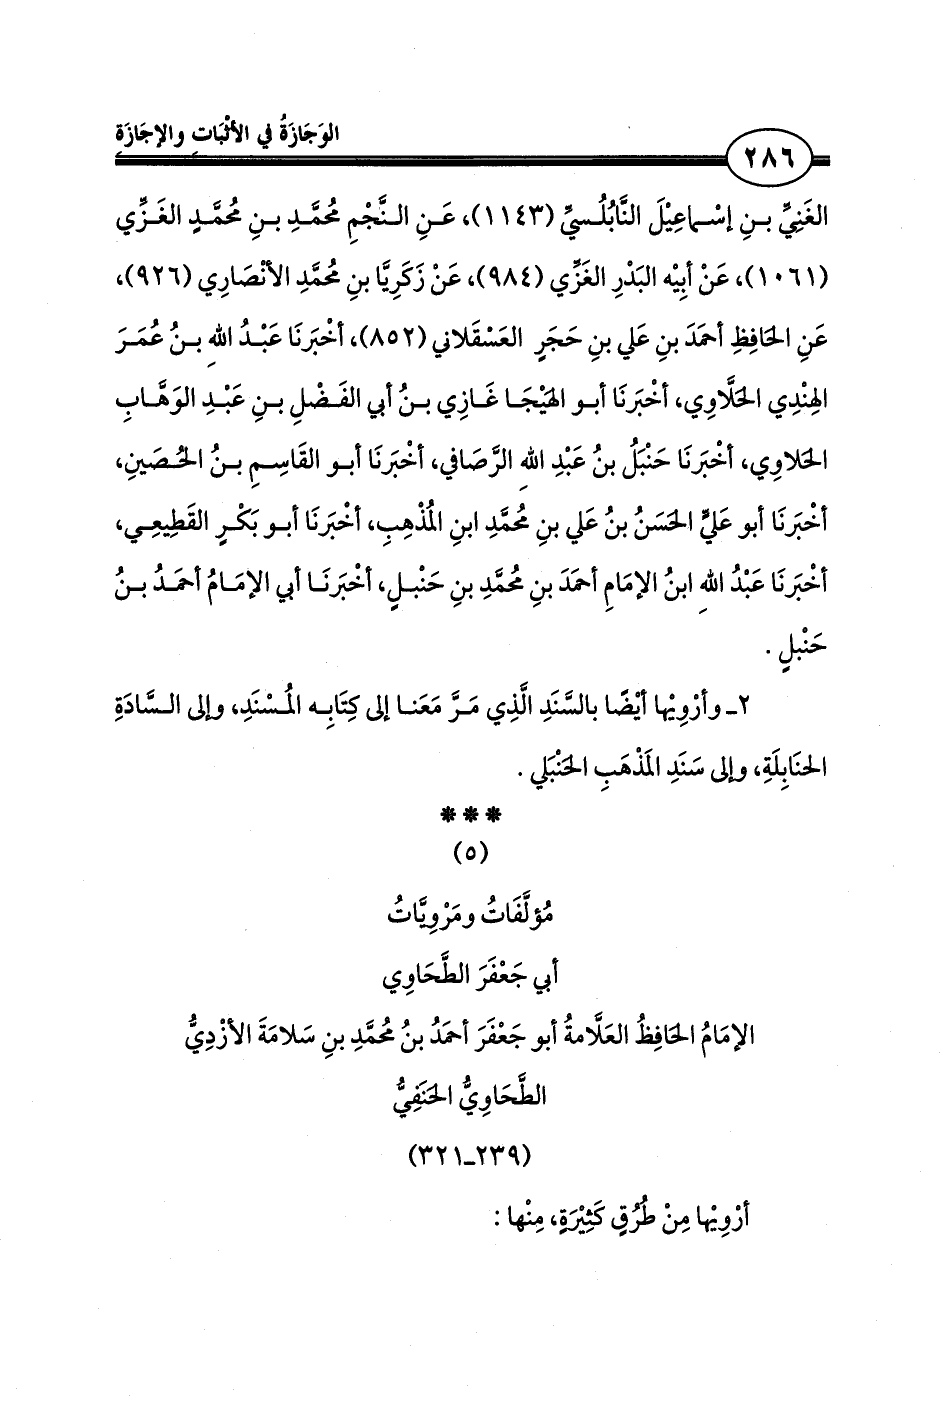 الوَجَازَةُ في الأثْبَاتِ والإجَازَةِ
٢٨٦
الغَنِيِّ بنِ إسْماعِيْلَ النَّابُلُسيِّ (١١٤٣)، عَنِ النَّجْمِ مُحمَّدِ بنِ مُحمَّدٍ الغَزِّي
(١٠٦١)، عَنْ أبِيْه البَدْرِ الغَزِّي (٩٨٤)، عَنْ زَكَرِيَّا بنِ مُحمَّدِ الأنْصَارِي (٩٢٦)،
عَنِ الحَافِظِ أحمَدَ بنِ عَلي بنِ حَجَرٍ العَسْقَلاني (٨٥٢)، أخْبَرنَا عَبْدُ اللهِ بنُ عُمَرَ
الهِنْدِي الحَلَّاوِي، أخْبَرَنَا أبو الهَيْجَا غَازِي بنُ أبي الفَضْلِ بنِ عَبْدِ الوَهَّابِ
الحَلاوِي، أخْبَرَنَا حَنْبَلُ بنُ عَبْدِ اللهِ الرَّصَافي، أخْبَرَنَا أبو القَاسِمِ بنُ الحُصَينِ،
أخْبَرَنَا أبو عَليٍّ الحَسَنُ بنُ عَلي بنِ مُحمَّدِ ابنِ المُذْهِبِ، أخْبَرَنَا أبو بَكْرٍ القَطِيعِي،
أخْبَرَنَا عَبْدُ اللهِ ابنُ الإمَامِ أحمَدَ بنِ مُحمَّدِ بنِ حَنْبلٍ، أخْبَرنَا أبي الإمَامُ أحمَدُ بنُ
حَنْبلٍ .
٢ـ وأرْوِيْها أيْضًا بالسَّنَدِ الَّذِي مَرَّ مَعَنا إلى كِتَابِه المُسْنَدِ، وإلى السَّادَةِ
الحنَابِلَةِ، وإلى سَنَدِ المَذْهَبِ الحَنْبَلي .
***
(٥)
مُؤلَّفَاتُ ومَرْوِيَّاتُ
أبي جَعْفَرَ الطَّحَاوِي
الإمَامُ الحَافِظُ العَلَّامةُ أبو جَعْفَرَ أحمَدُ بنُ مُحمَّدِ بنِ سَلامَةَ الأزْدِيُّ
الطَّحَاوِيُّ الحَنَفِيُّ
(٢٣٩ـ٣٢١)
أرْوِيْها مِنْ طُرُقٍ كَثِيْرَةٍ، مِنْها :